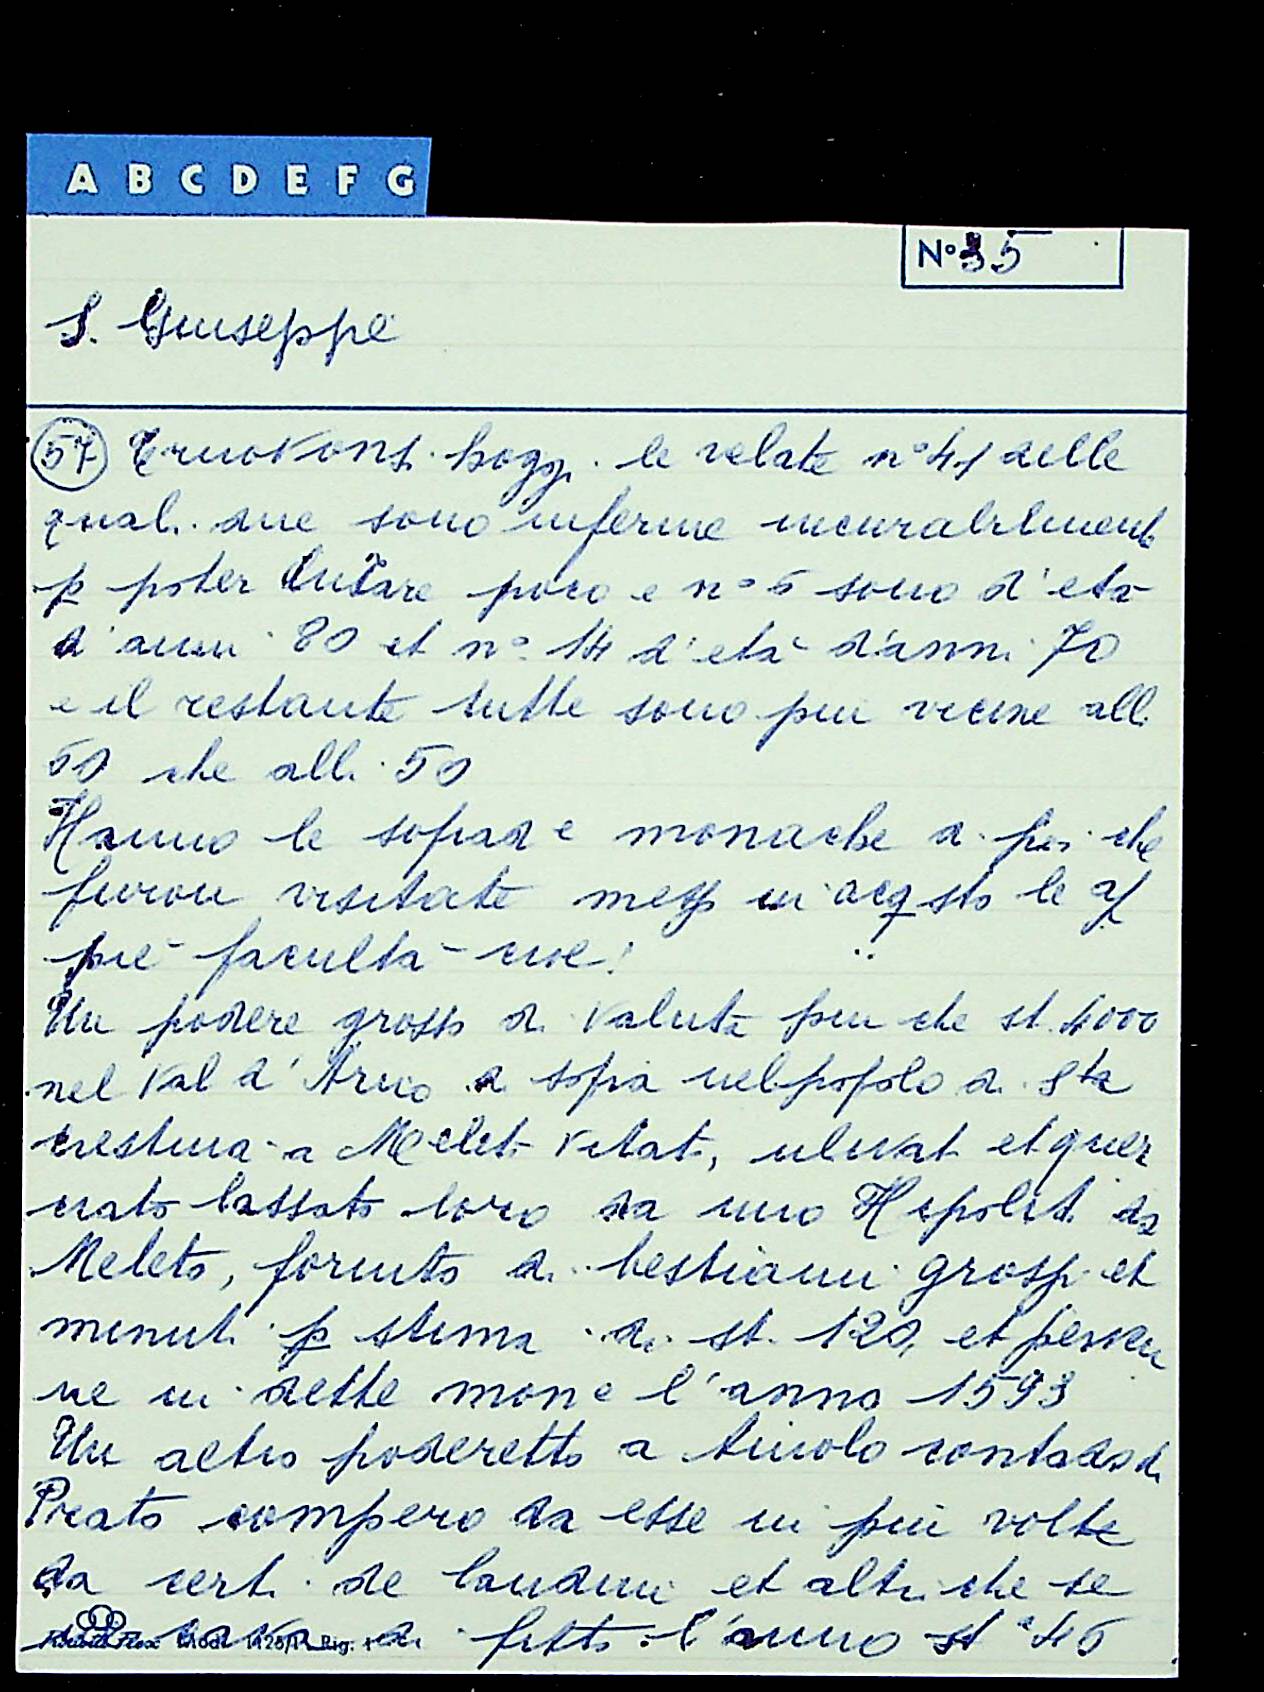 A B C D E F G
N° 35
S. Giuseppe
57 Truovons. hogg. le velate n° 41 delle
qual. due sono inferme incurabilment
p poter durare poco e n° 6 sono d'età
d'anni 80 et n° 14 d'età d'anni 70
e il restante tutte sono piu vicine all.
60 che alli 50
Hanno le soprade monache di poi che
furon visitate mess in acqsto le
faculta cioe:
Un podere grosso di valuta piu che st. 4000
nel Val d'Arno di sopra nel popolo di Sta
crestina a Melet. vitat, ulivat et quer
ciato lassato loro da uno Hipolit. da
Meleto, fornito di bestiami grossi et
minuti p stima di st. 120, et perven
ne in dette mone l'anno 1593
Un altro poderetto a contado di
Prato compero da esse in piu volte
da certi de landini et altri che se
di fitto l'anno st 45